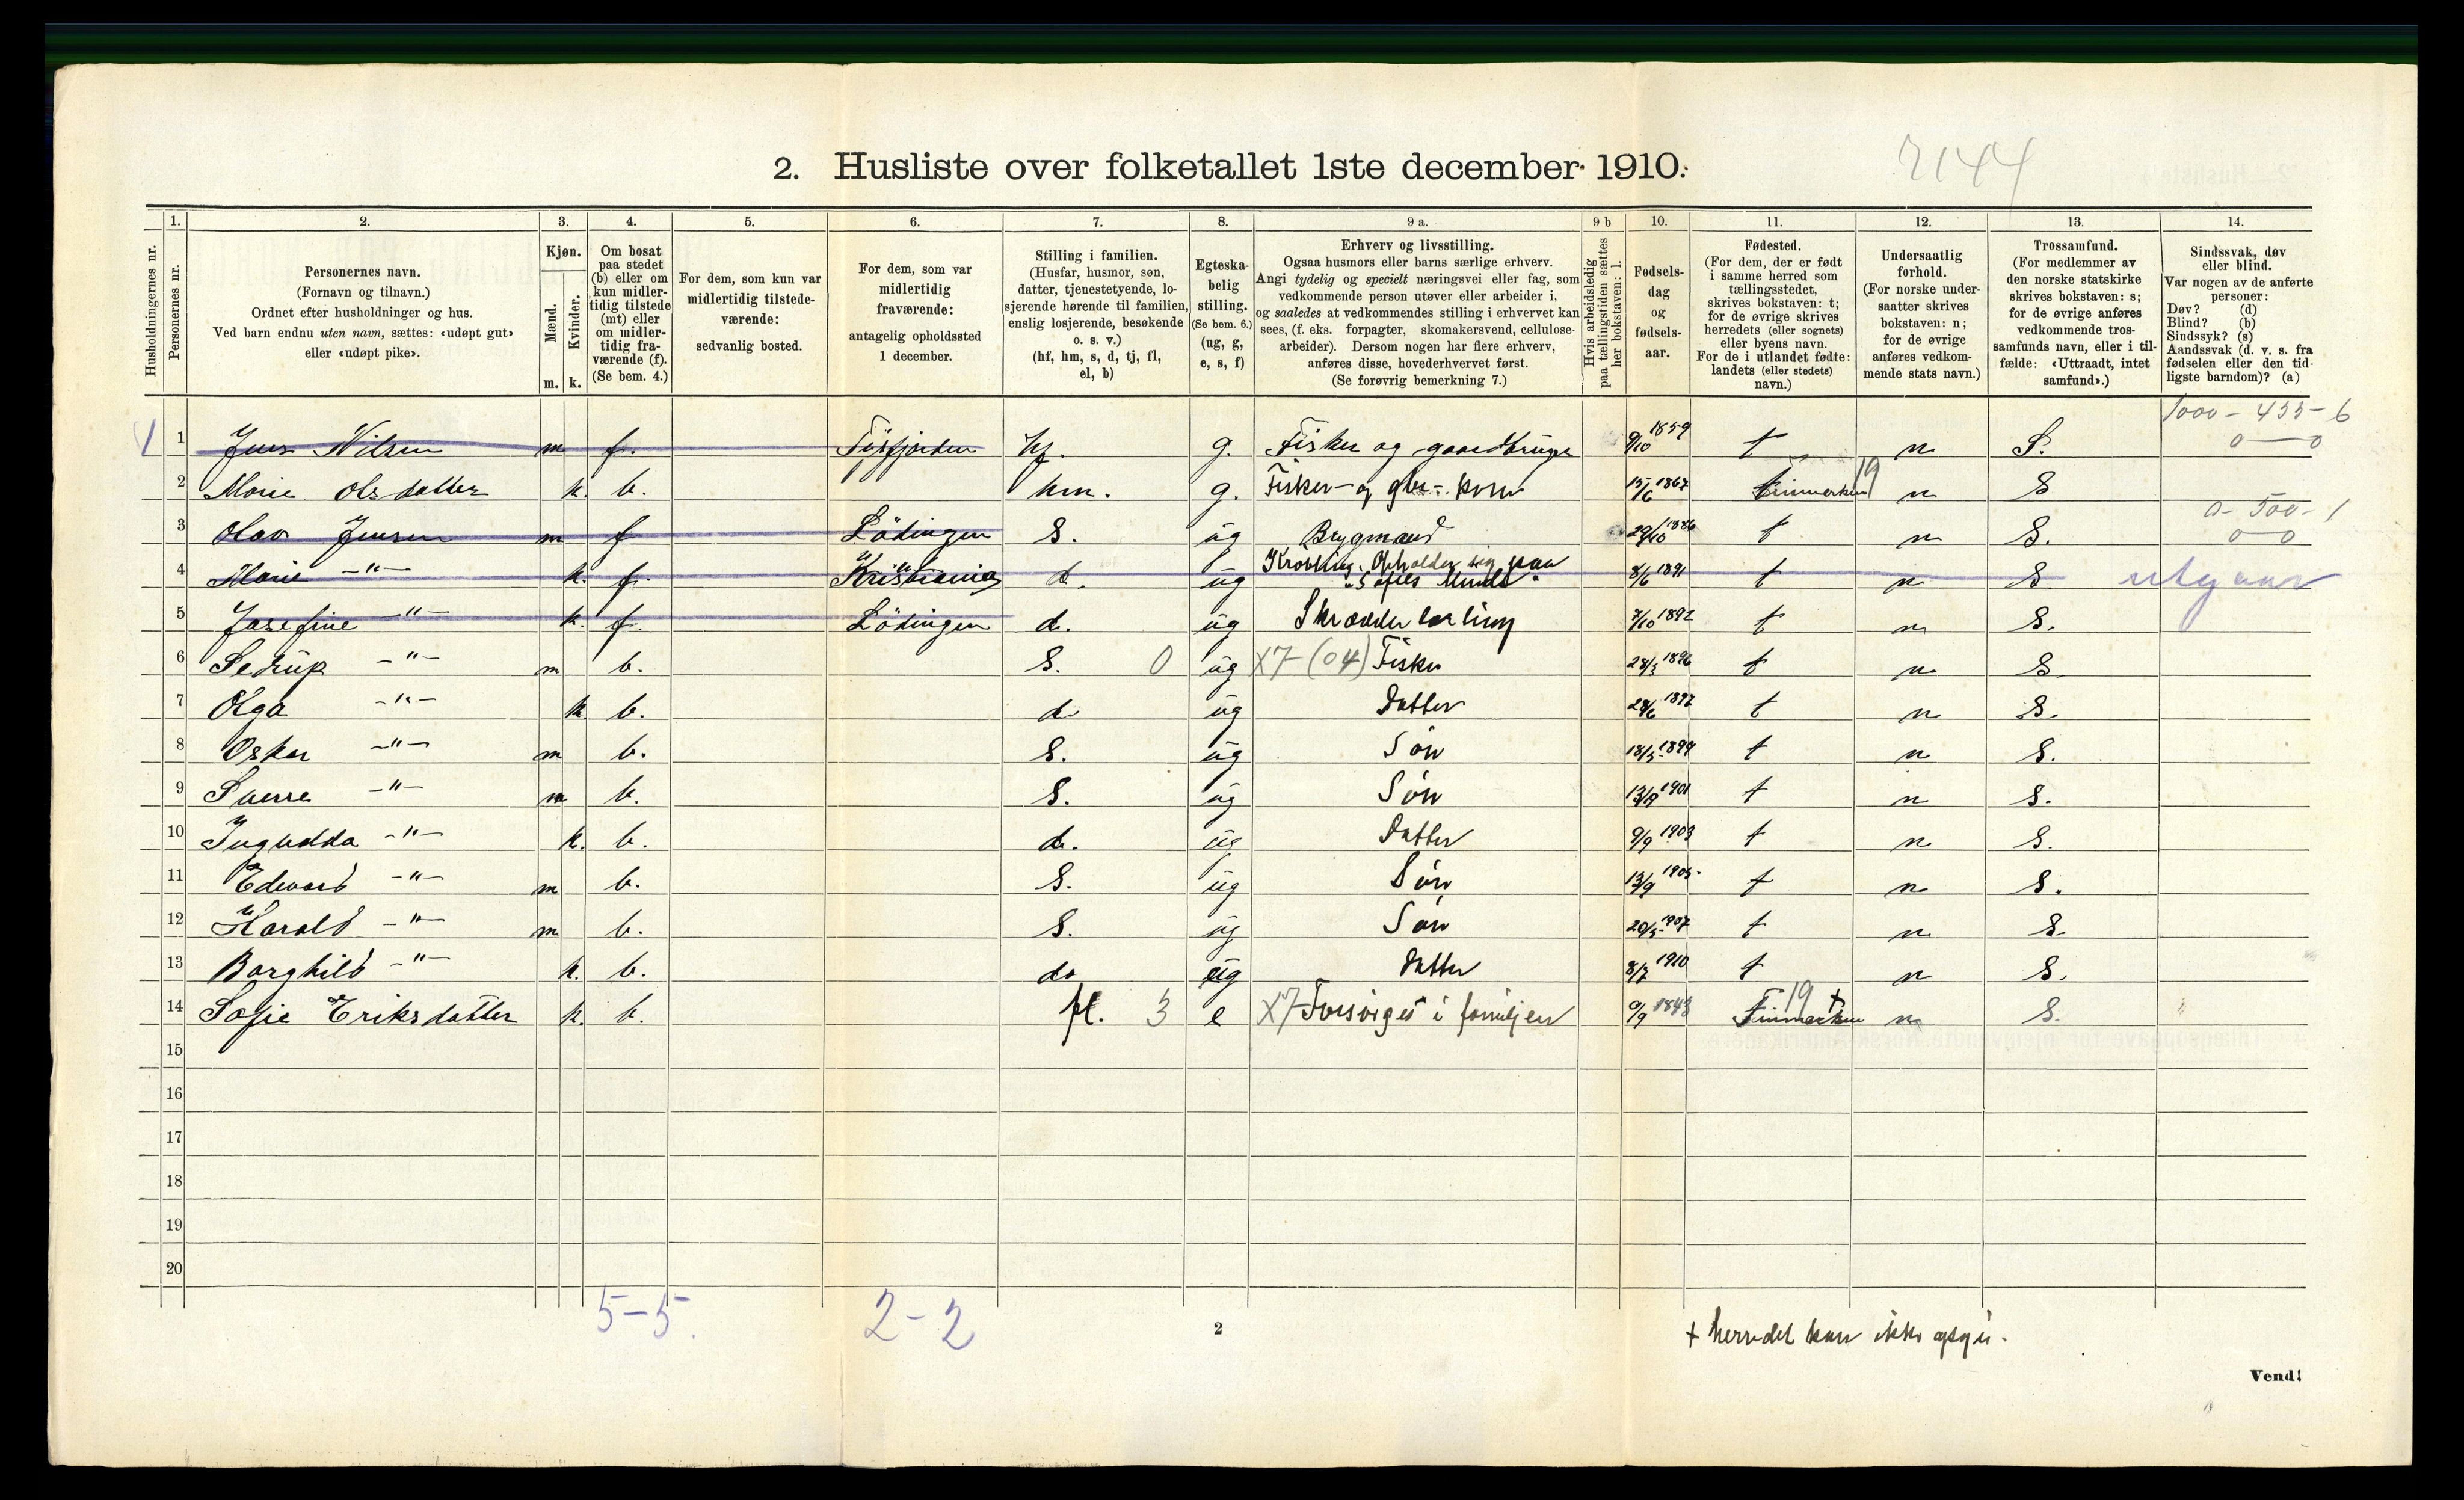 2. Husliste over folketallet 1ste december 1910.
2144
1. 2. 3. 4. 5. 6. 7. 8. 9 a. 9 b 10. 11. 12. 13. 14.
Husholdningernes nr.
Personernes nr.
Personernes navn.
(Fornavn og tilnavn.)
Ordnet efter husholdninger og hus.
Ved barn endnu uten navn, sættes: «udøpt gut»
eller «udøpt pike».
Kjøn.
Mænd.
Kvinder.
m. k.
Om bosat
paa stedet
(b) eller om
kun midler-
tidig tilstede
(mt) eller
om midler-
tidig fra-
værende (f).
(Se bem. 4.)
For dem, som kun var
midlertidig tilstede-
værende:
sedvanlig bosted.
For dem, som var
midlertidig
fraværende:
antagelig opholdssted
1 december.
Stilling i familien.
(Husfar, husmor, søn,
datter, tjenestetyende, lo-
sjerende hørende til familien,
enslig losjerende, besøkende
o. s. v.)
(hf, hm, s, d, tj, fl,
el, b)
Egteska-
belig
stilling.
(Se bem. 6.)
(ug, g,
e, s, f)
Erhverv og livsstilling.
Ogsaa husmors eller barns særlige erhverv.
Angi tydelig og specielt næringsvei eller fag, som
vedkommende person utøver eller arbeider i,
og saaledes at vedkommendes stilling i erhvervet kan
sees, (f. eks. forpagter, skomakersvend, cellulose-
arbeider). Dersom nogen har flere erhverv,
anføres disse, hovederhvervet først.
(Se forøvrig bemerkning 7.)
Hvis arbeidsledig
paa tællingstiden sættes
her bokstaven: l.
Fødsels-
dag
og
fødsels-
aar.
Fødested.
(For dem, der er født
i samme herred som
tællingsstedet,
skrives bokstaven: t;
for de øvrige skrives
herredets (eller sognets)
eller byens navn.
For de i utlandet fødte:
landets (eller stedets)
navn.)
Undersaatlig
forhold.
(For norske under-
saatter skrives
bokstaven: n;
for de øvrige
anføres vedkom-
mende stats navn.)
Trossamfund.
(For medlemmer av
den norske statskirke
skrives bokstaven: s;
for de øvrige anføres
vedkommende tros-
samfunds navn, eller i til-
fælde: «Uttraadt, intet
samfund».)
Sindssvak, døv
eller blind.
Var nogen av de anførte
personer:
Døv? (d)
Blind? (b)
Sindssyk? (s)
Aandssvak (d. v. s. fra
fødselen eller den tid-
ligste barndom)? (a)
1000 - 455 - 6
0 — 0
1 1 Jens Nilsen m f. Tysfjorden hf. g. Fisker og gaardbruger 9/10 1859 t n S.
2 Marie Olsdatter k. b. hm. g. Fisker- og gbr.- kone 15/6 1867 Finmarken 19 n S
0 - 500 - 1
0 - 0
3 Olav Jensen m f Lödingen S. ug Bygmand 29/10 1886 t n S.
4 Marie -"- k. f. Kristiania d. ug Krøbling. Opholder sig paa
"Sofies Minde" 8/6 1891 t n S utgaar
5 Josefine -"- k. f. Lödingen d. ug Skrædderlærling 7/10 1892 t n S.
6 Sedrup -"- m b. S. 0 ug X7-(04) Fisker 28/3 1896 t n S.
7 Olga -"- k b. d. ug Datter 28/6 1897 t n S.
8 Oskar -"- m b. S. ug Søn 18/5 1899 t n S.
9 Sverre -"- m b. S. ug Søn 13/9 1901 t n S.
10 Ingvdda -"- k. b. d. ug Datter 9/9 1903 t n S.
11 Edvard -"- m b. S. ug Søn 13/9 1905 t n S.
12 Harald -"- m b. S. ug Søn 20/5 1907 t n S.
13 Borghild -"- k. b. d. ug Datter 8/7 1910 t n S.
14 Sofie Eriksdatter k. b. fl. 3 e X7 Forsörges i familjen 9/9 1843 Finmarken 19 + n S.
15
16
17
18
19
20
5-5. 2-2
2
+ herredet kan ikke opgis.
Vend!